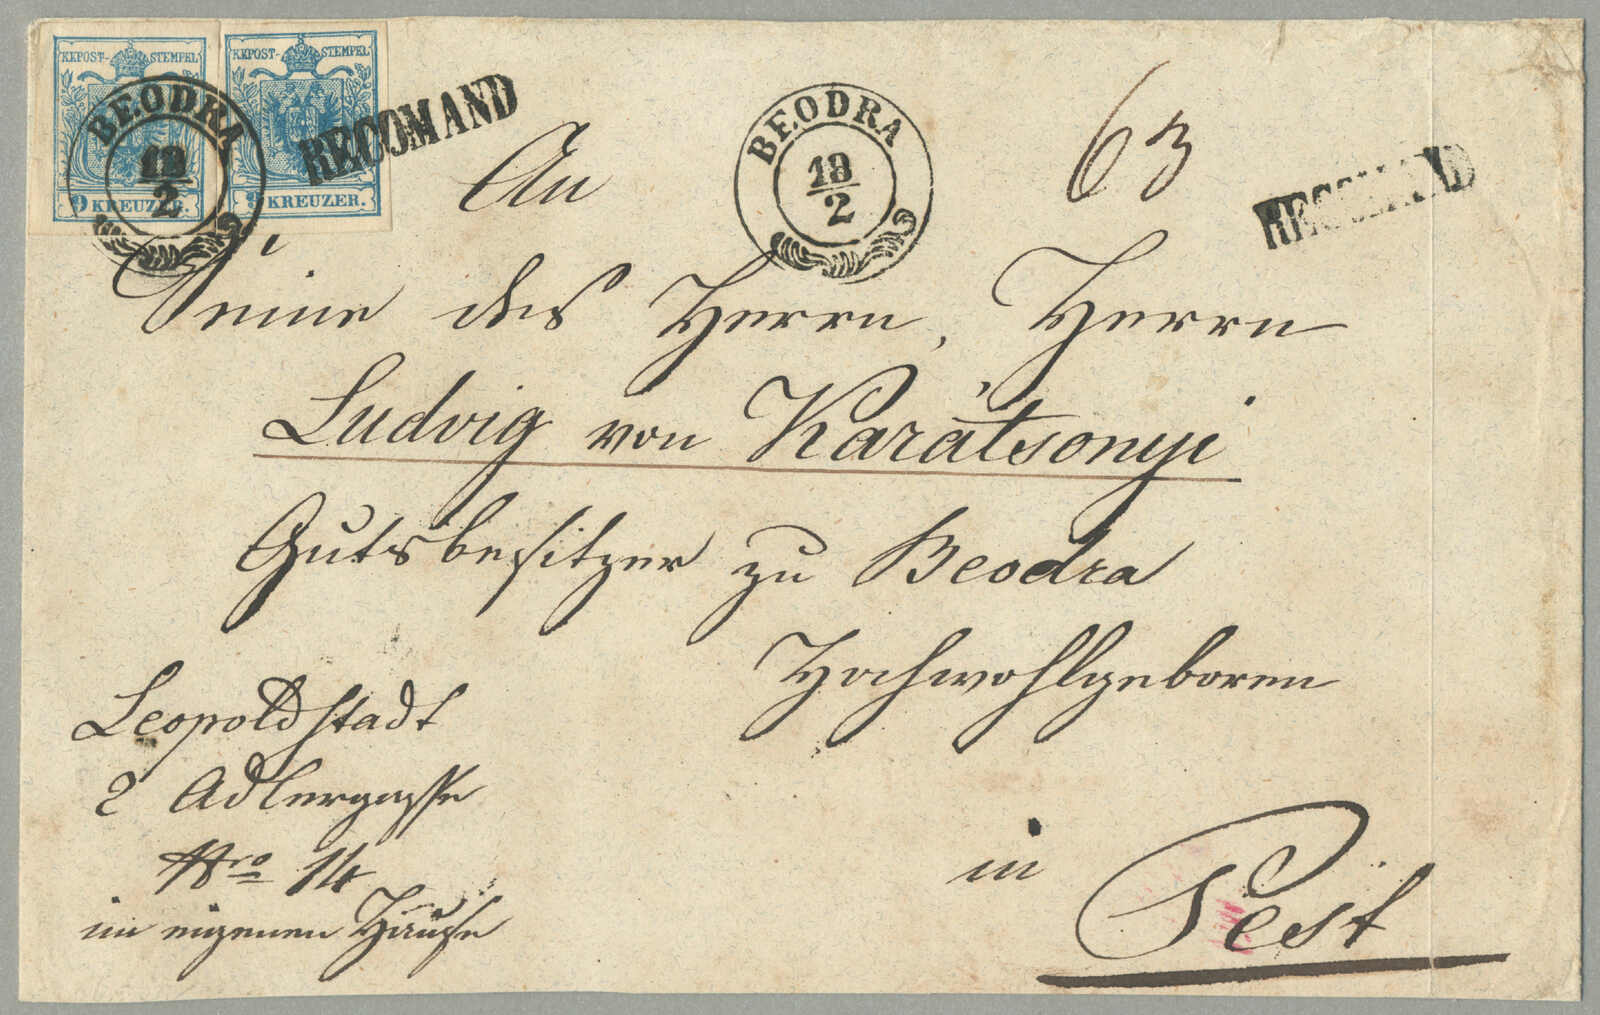 KKPOST-STEMPEL KKPOST-STEMPEL
9 KREUZER. 9 KREUZER.
BEODRA
18
2
RECOMAND
BEODRA
18
2
63
RECOMAND
An
Seine des Herrn, Herrn
Ludvig von Karátsonyi
Gutsbesitzer zu Beodra
Hochwohlgeboren
Leopoldstadt
2 Adlergasse
Nro 14
im eigenen Hause
in
Pest